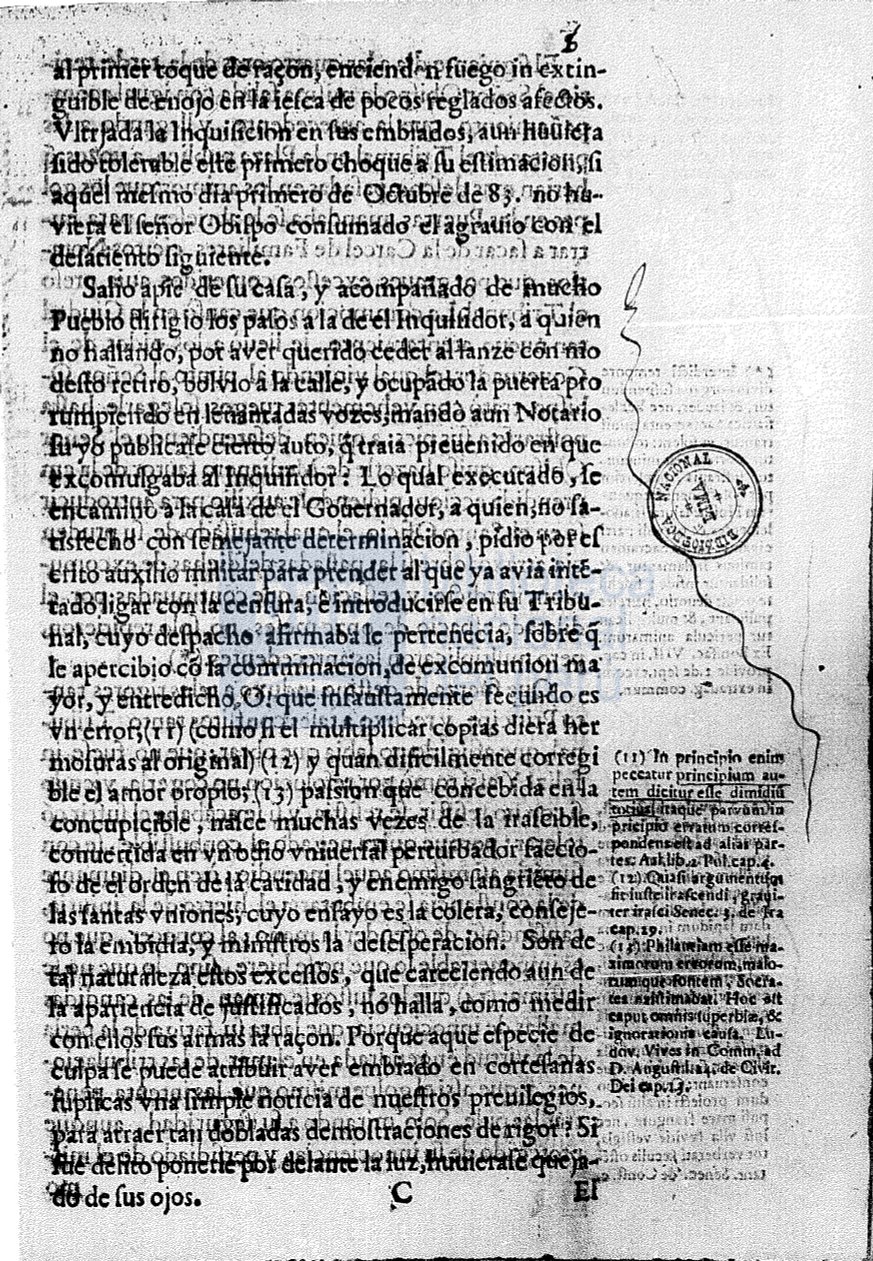 al primer toque de raçon, encienden fuego in extin-
guible de enojo en la iesca de pocos reglados afectos.
Vltrjada la Inquisicion en sus embiados, aun huuiera
sido tolerable este primero choque a su estimacion, si
aquel mesmo dia primero de Octubre de 83. no hu-
viera el señor Obispo consumado el agrauio con el
desaciento siguiente.
Salio apie de su casa, y acompañado de mucho
Pueblo dirigio los pasos a la de el Inquisidor, a quien
no hallando, por aver querido ceder al lanze con mo
desto retiro, bolvio à la calle, y ocupado la puerta pro
rumpiendo en leuantadas vozes, mandò aun Notario
su yo publicase cierto auto, q̃ traia preuenido en que
excomulgaba al Inquisidor: Lo qual executado, se
encaminò à la casa de el Gouernador, a quien, no sa-
tisfecho con semejante determinacion, pidio por es
crito auxilio militar para prender al que ya avia inte-
tado ligar con la censura, è introducirle en su Tribu-
nal, cuyo despacho afirmaba le pertenecia, sobre q̃
le apercibio cō la comminacion, de excomunion ma
yor, y entredicho, O! que infaustamente fecundo es
vn error, (11) (como si el multiplicar copias diera her
mosuras al original) (12) y quan dificilmente corregi
ble el amor propio, (13) passiun que concebida en la
concupicible, nace muchas vezes de la irascible,
conuertida en vn odio vniuersal perturbador faccio-
so de el orden de la caridad, y enemigo sangrieto de
las santas vniones, cuyo ensayo es la colera, conseje-
ro la embidia, y ministros la desesperacion. Son de
tal naturaleza estos excessos, que careciendo aun de
la apariencia de justificados, no halla, como medir
con ellos sus armas la raçon. Porque aque especie de
culpa se puede atribuir aver embiado en cortesanas
suplicas vna simple noticia de nuestros preuilegios,
para atraer tan dobladas demostraciones de rigor? Si
fue delito ponerle por delante la luz, huuierase queja-
do de sus ojos.
C
El
(11) In principio enim
peccatur principium au-
tem dicitur esse dimidiũ
totius itaque parvum in
pricipio erratum corres-
pondens est ad alias par-
tes. Ast. lib. 2. Pol. cap. 4.
(12) Quasi argumentum
sit iuste irascendi, graui-
ter irasci Senec. 3. de Ira
cap. 29.
(13) Philautiam esse ma-
ximorum errorum, malo-
rum que fontem, Socra-
tes existimabat. Hoc est
caput omnis superbiæ, &
ignorationis causa. Lu-
dov. Vives in Comm. ad
D. August. l. 14. de Civit.
Dei cap. 13.
BIBLIOTECA NACIONAL
LIMA